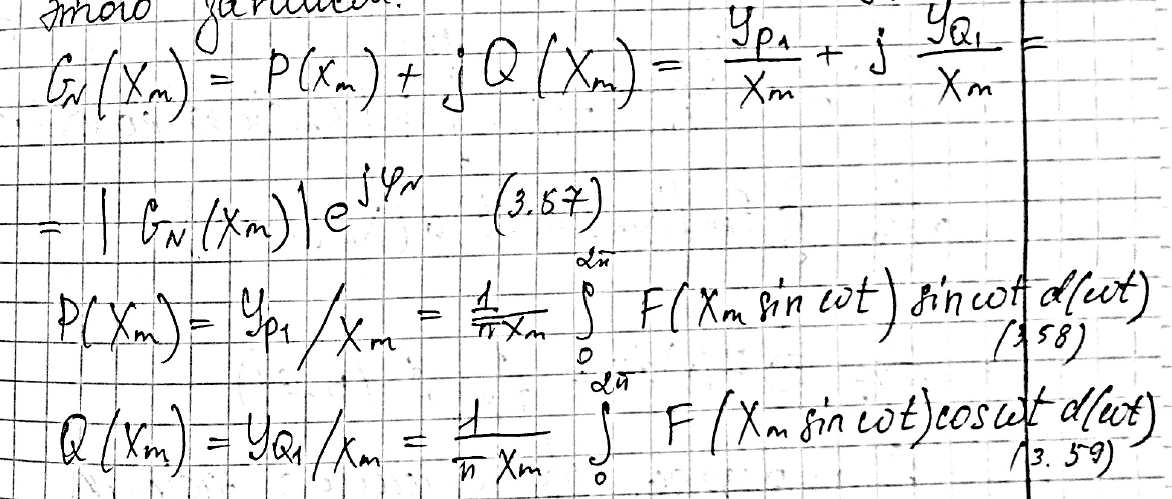 G_N(X_m) = P(X_m) + jQ(X_m) = y_{P1}/X_m + j y_{Q1}/X_m =
= |G_N(X_m)| e^{jφ_N} (3.57)
P(X_m) = y_{P1}/X_m = 1/(πX_m) ∫_0^{2π} F(X_m sin ωt) sin ωt d(ωt) (3.58)
Q(X_m) = y_{Q1}/X_m = 1/(π X_m) ∫_0^{2π} F(X_m sin ωt) cos ωt d(ωt) (3.59)